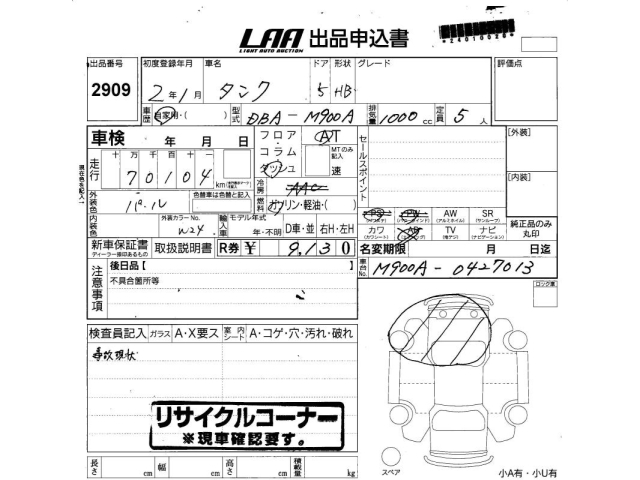 LAA 出品申込書
LIGHT AUTO AUCTION
*24010020*
出品番号 初度登録年月 車名 ドア 形状 グレード 評価点
2909 2年1月 タンク 5 HB
車歴 自家用・( ) 型式 DBA-M900A 排気量 1000cc 定員 5人
車検 年 月 日 フロア・コラム・ダッシュ AT MTのみ記入 速 セールスポイント [外装]
現在色を記入
走行 十万千百十 70104 km
冷房 AAC
[内装]
外装色 パール 色替車は色替と記入 燃料 ガソリン・軽油・( )
PS PW AW SR
(パワステ) (パワーウインド) (アルミホイル) (サンルーフ)
内装色 外装カラーNo. W24 輸入車 モデル年式 年・不明 D車・並 右H・左H
カワ AB TV ナビ
(カワシート) (エアバッグ) (地デジ) (ナビゲーション)
純正品のみ丸印
新車保証書 取扱説明書 R券 ¥ 9,130
ディーラー捺印あるもの
名変期限 月 日迄
車台No. M900A-0427013
注意事項 後日品【 】
不具合箇所等
ロック番
検査員記入 ガラス A・X要ス 室内シート A・コゲ・穴・汚れ・破れ
事故現状
リサイクルコーナー
※現車確認要す。
長さ cm 幅 cm 高さ cm 積載量 kg
スペア
小A有・小U有